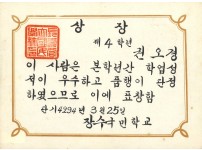 상장
제4학년
권오경
이 사람은 본학년간 학업성
적이 우수하고 품행이 단정
하였으므로 이에 표창함
단기4294年 3月25日
장수국민학교